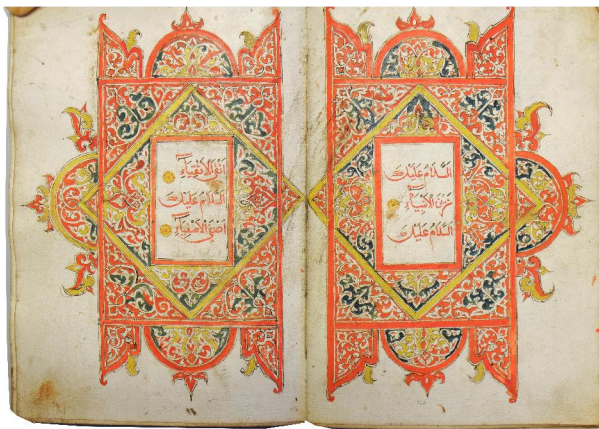 السَّلَامُ عَلَيْكَ
زَيْنَ الْأَنْبِيَاءِ
السَّلَامُ عَلَيْكَ
أَتْقَى الْأَتْقِيَاءِ
السَّلَامُ عَلَيْكَ
أَصْفَى الْأَصْفِيَاءِ